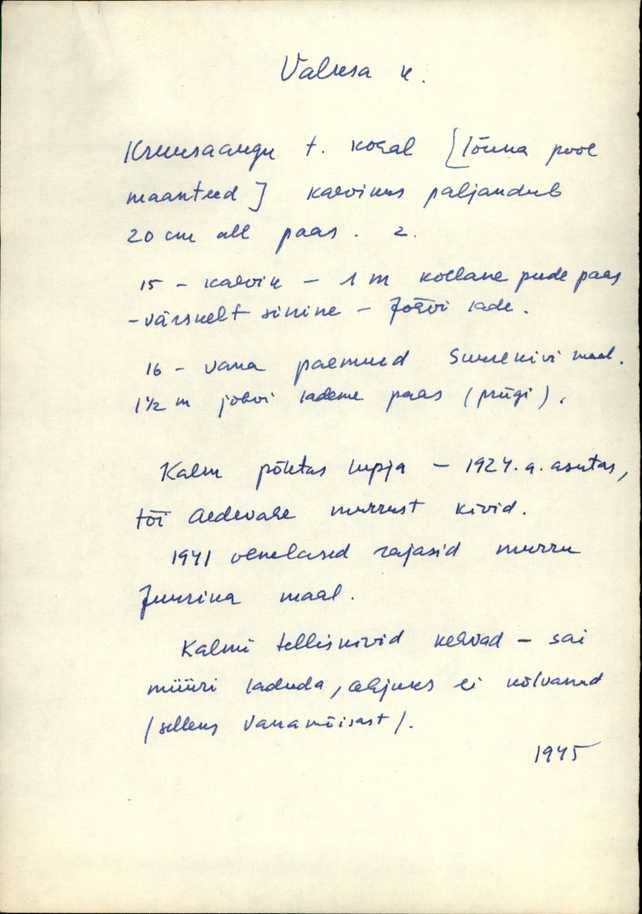 Valresa k.
Kruusaaugu t. kohal [lõuna pool
maanteed] kaevikus paljandub
20 cm all paas. 2.
15 - kaevik - 1 m kollane pude paas
- värskelt sinine - Jõhvi lade.
16 - vana paemurd Suurekivi maal.
1½ m jõhvi lademe paas (prügi).
Kalm põletas lupja - 1924. a. asutas,
tõi Aedevahe murrust kivid.
1941 venelased rajasid murru
Juurika maal.
Kalmi telliskivid kehvad - sai
müüri laduda, ahjuks ei kõlvanud
/selleks Vanamõisast/.
1945